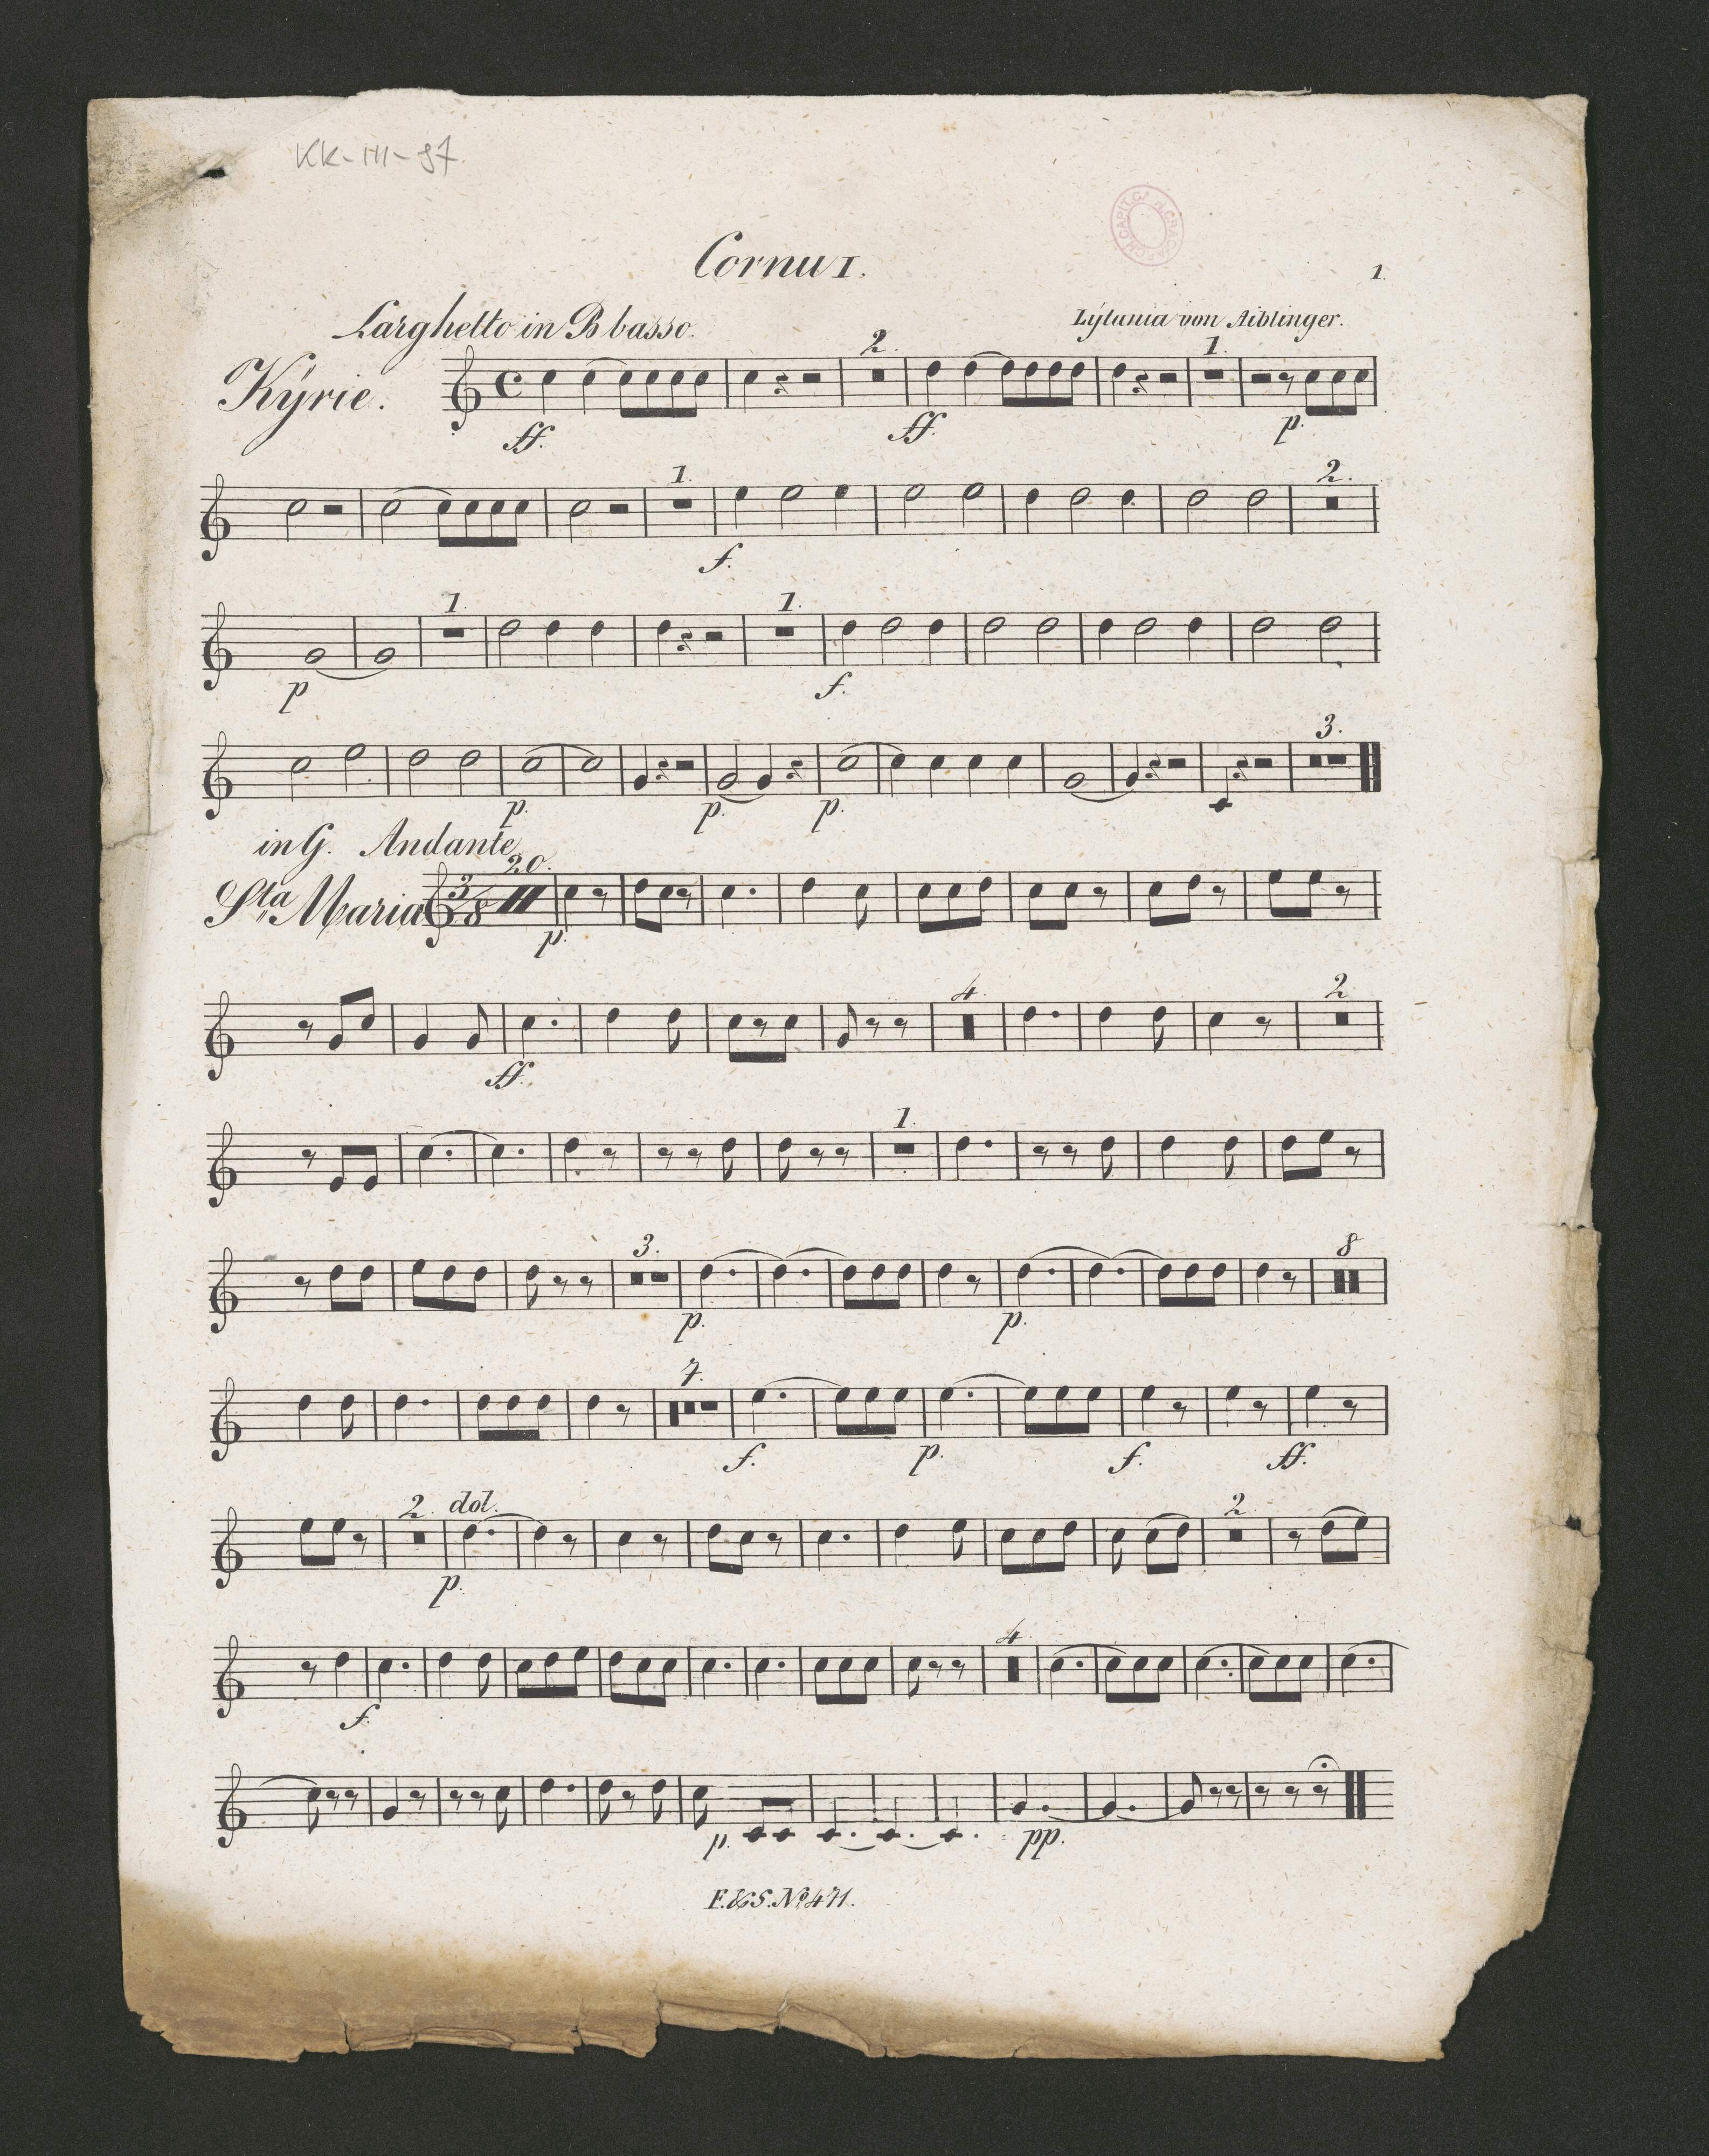 KK-III-97.
Cornu I.
1.
Larghetto in B basso.
Lÿtania von Aiblinger.
Kÿrie.
2.
1.
ff.
ff.
p.
1.
2.
f.
1.
1.
p
f.
3.
p.
p.
p.
in G. Andante
20.
Sta Maria
3/8
p.
4.
2
ff.
1.
3.
8
p.
p.
7.
f.
p.
f.
ff.
2. dol.
2
p.
4
f.
p.
pp.
F. & S. No 471.